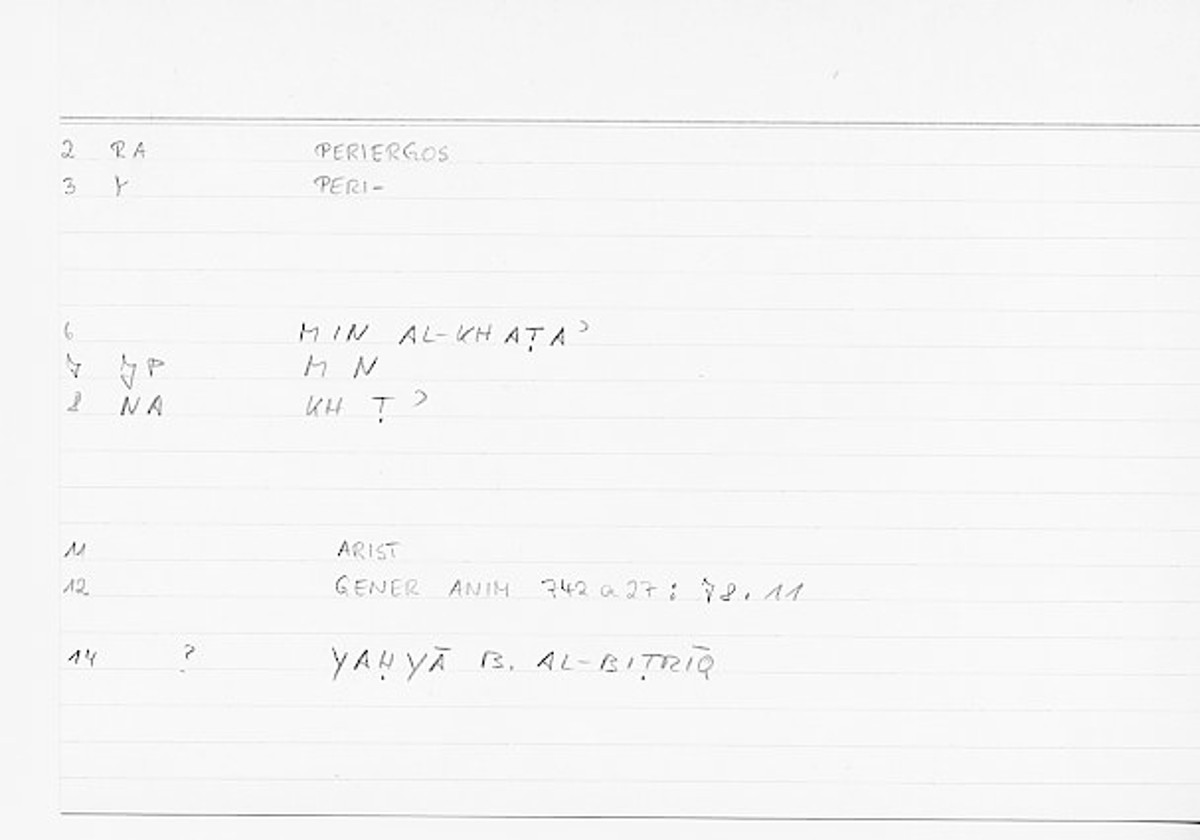 2 RA PERIERGOS
3 Y PERI-
6 MIN AL-KHAṬAʾ
7 JP M N
8 NA KH Ṭ ʾ
11 ARIST
12 GENER ANIM 742 a 27 : 78. 11
14 ? YAḤYĀ B. AL-BIṬRĪQ